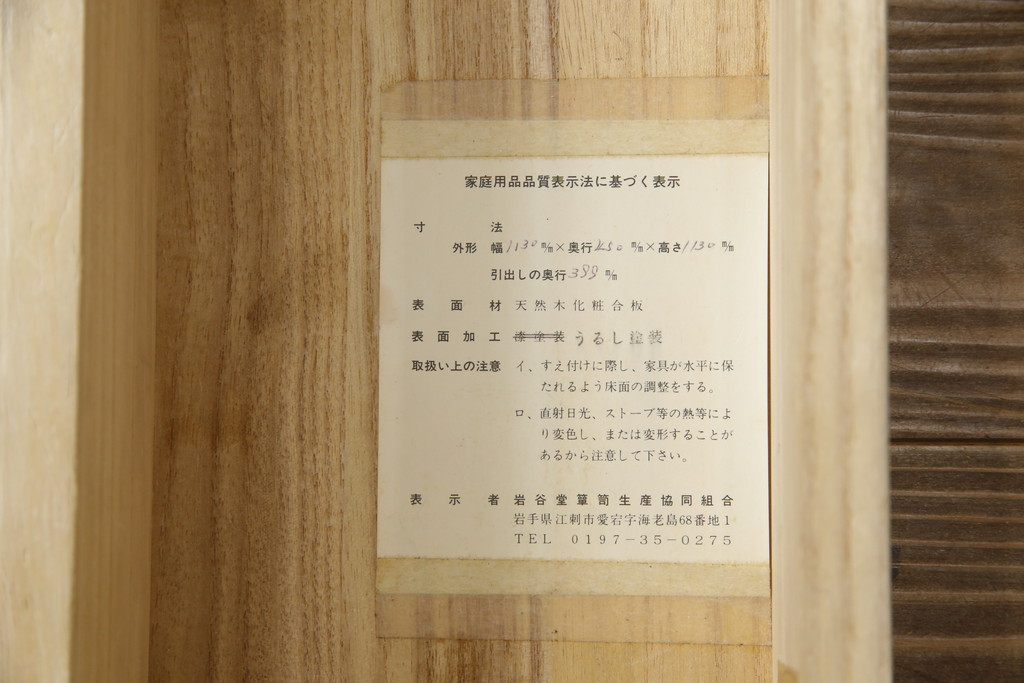 家庭用品品質表示法に基づく表示
寸法
外形 幅1130㎜×奥行450㎜×高さ1130㎜
引出しの奥行388㎜
表面材 天然木化粧合板
表面加工 漆塗装 うるし塗装
取扱い上の注意 イ、すえ付けに際し、家具が水平に保
たれるよう床面の調整をする。
ロ、直射日光、ストーブ等の熱等によ
り変色し、または変形することが
あるから注意して下さい。
表示者 岩谷堂簞笥生産協同組合
岩手県江刺市愛宕字海老島68番地1
TEL 0197-35-0275